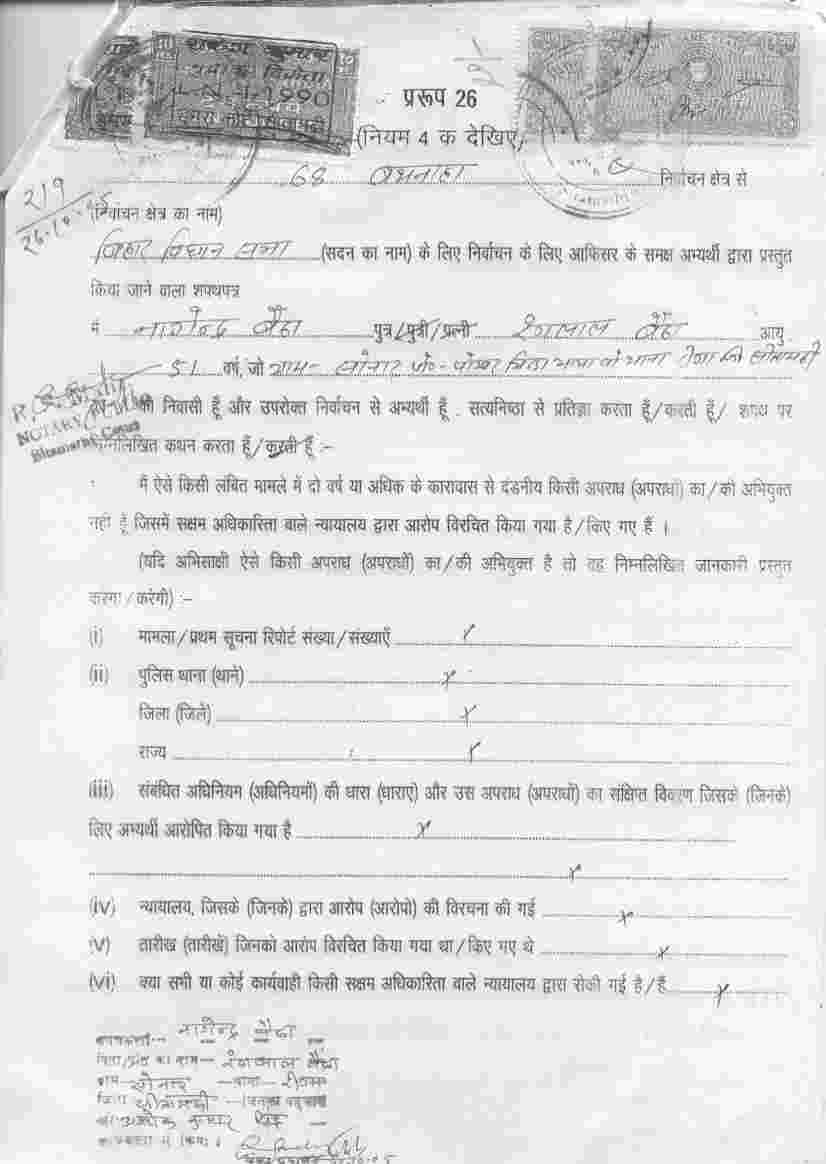 1990
प्ररूप 26
(नियम 4 क देखिए)
68 बथनाहा निर्वाचन क्षेत्र से
219
26.10.05
(निर्वाचन क्षेत्र का नाम)
बिहार विधान सभा (सदन का नाम) के लिए निर्वाचन के लिए आफिसर के समक्ष अभ्यर्थी द्वारा प्रस्तुत
किया जाने वाला शपथपत्र
मैं नागेन्द्र बैठा पुत्र/पुत्री/पत्नी रंगलाल बैठा आयु
51 वर्ष, जो ग्राम- सोनार पो०- पोखर भाया थाना
NOTARY
की निवासी हूँ और उपरोक्त निर्वाचन से अभ्यर्थी हूँ . सत्यनिष्ठा से प्रतिज्ञा करता हूँ/करती हूँ/ शपथ पर
निम्नलिखित कथन करता हूँ/करती हूँ :-
मैं ऐसे किसी लंबित मामले में दो वर्ष या अधिक के कारावास से दंडनीय किसी अपराध (अपराधों) का/की अभियुक्त
नहीं हूँ जिसमें सक्षम अधिकारिता वाले न्यायालय द्वारा आरोप विरचित किया गया है/किए गए हैं ।
(यदि अभिसाक्षी ऐसे किसी अपराध (अपराधों) का/की अभियुक्त है तो वह निम्नलिखित जानकारी प्रस्तुत
करेगा/करेगी) :-
(i) मामला/प्रथम सूचना रिपोर्ट संख्या/संख्याएँ x
(ii) पुलिस थाना (थाने) x
जिला (जिले) x
राज्य x
(iii) संबंधित अधिनियम (अधिनियमों) की धारा (धाराएं) और उस अपराध (अपराधों) का संक्षिप्त विवरण जिसके (जिनके)
लिए अभ्यर्थी आरोपित किया गया है x
x
(iv) न्यायालय, जिसके (जिनके) द्वारा आरोप (आरोपो) की विरचना की गई x
(v) तारीख (तारीखें) जिनको आरोप विरचित किया गया था/किए गए थे x
(vi) क्या सभी या कोई कार्यवाही किसी सक्षम अधिकारिता वाले न्यायालय द्वारा रोकी गई है/हैं x
नागेन्द्र बैठा
पिता/पति का नाम- रंगलाल बैठा
ग्राम- सोनार -थाना-
जिला
अशोक कुमार सिंह